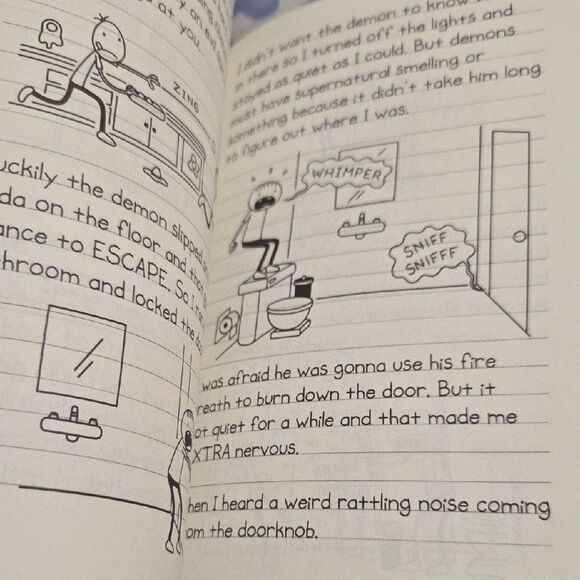 at you.
ZING
uckily the demon slipped
da on the floor and
ance to ESCAPE. So I
hroom and locked the
I didn't want the demon to know
in there so I turned off the lights and
stayed as quiet as I could. But demons
must have supernatural smelling or
something because it didn't take him long
to figure out where I was.
WHIMPER
SNIFF
SNIFFF
was afraid he was gonna use his fire
reath to burn down the door. But it
ot quiet for a while and that made me
XTRA nervous.
hen I heard a weird rattling noise coming
om the doorknob.